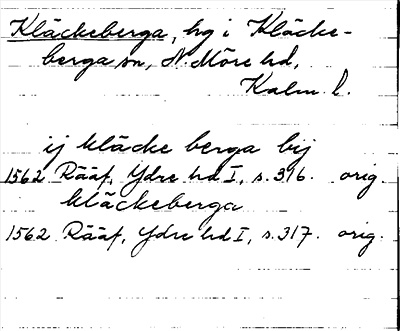 Kläckeberga, hg i Kläcke-
berga sn, N. Möre hd,
Kalm. l.
ij kläcke berga bij
1562 Rääf, Ydre hd I, s. 316. orig.
kläckeberga
1562 Rääf, Ydre hd I, s. 317. orig.